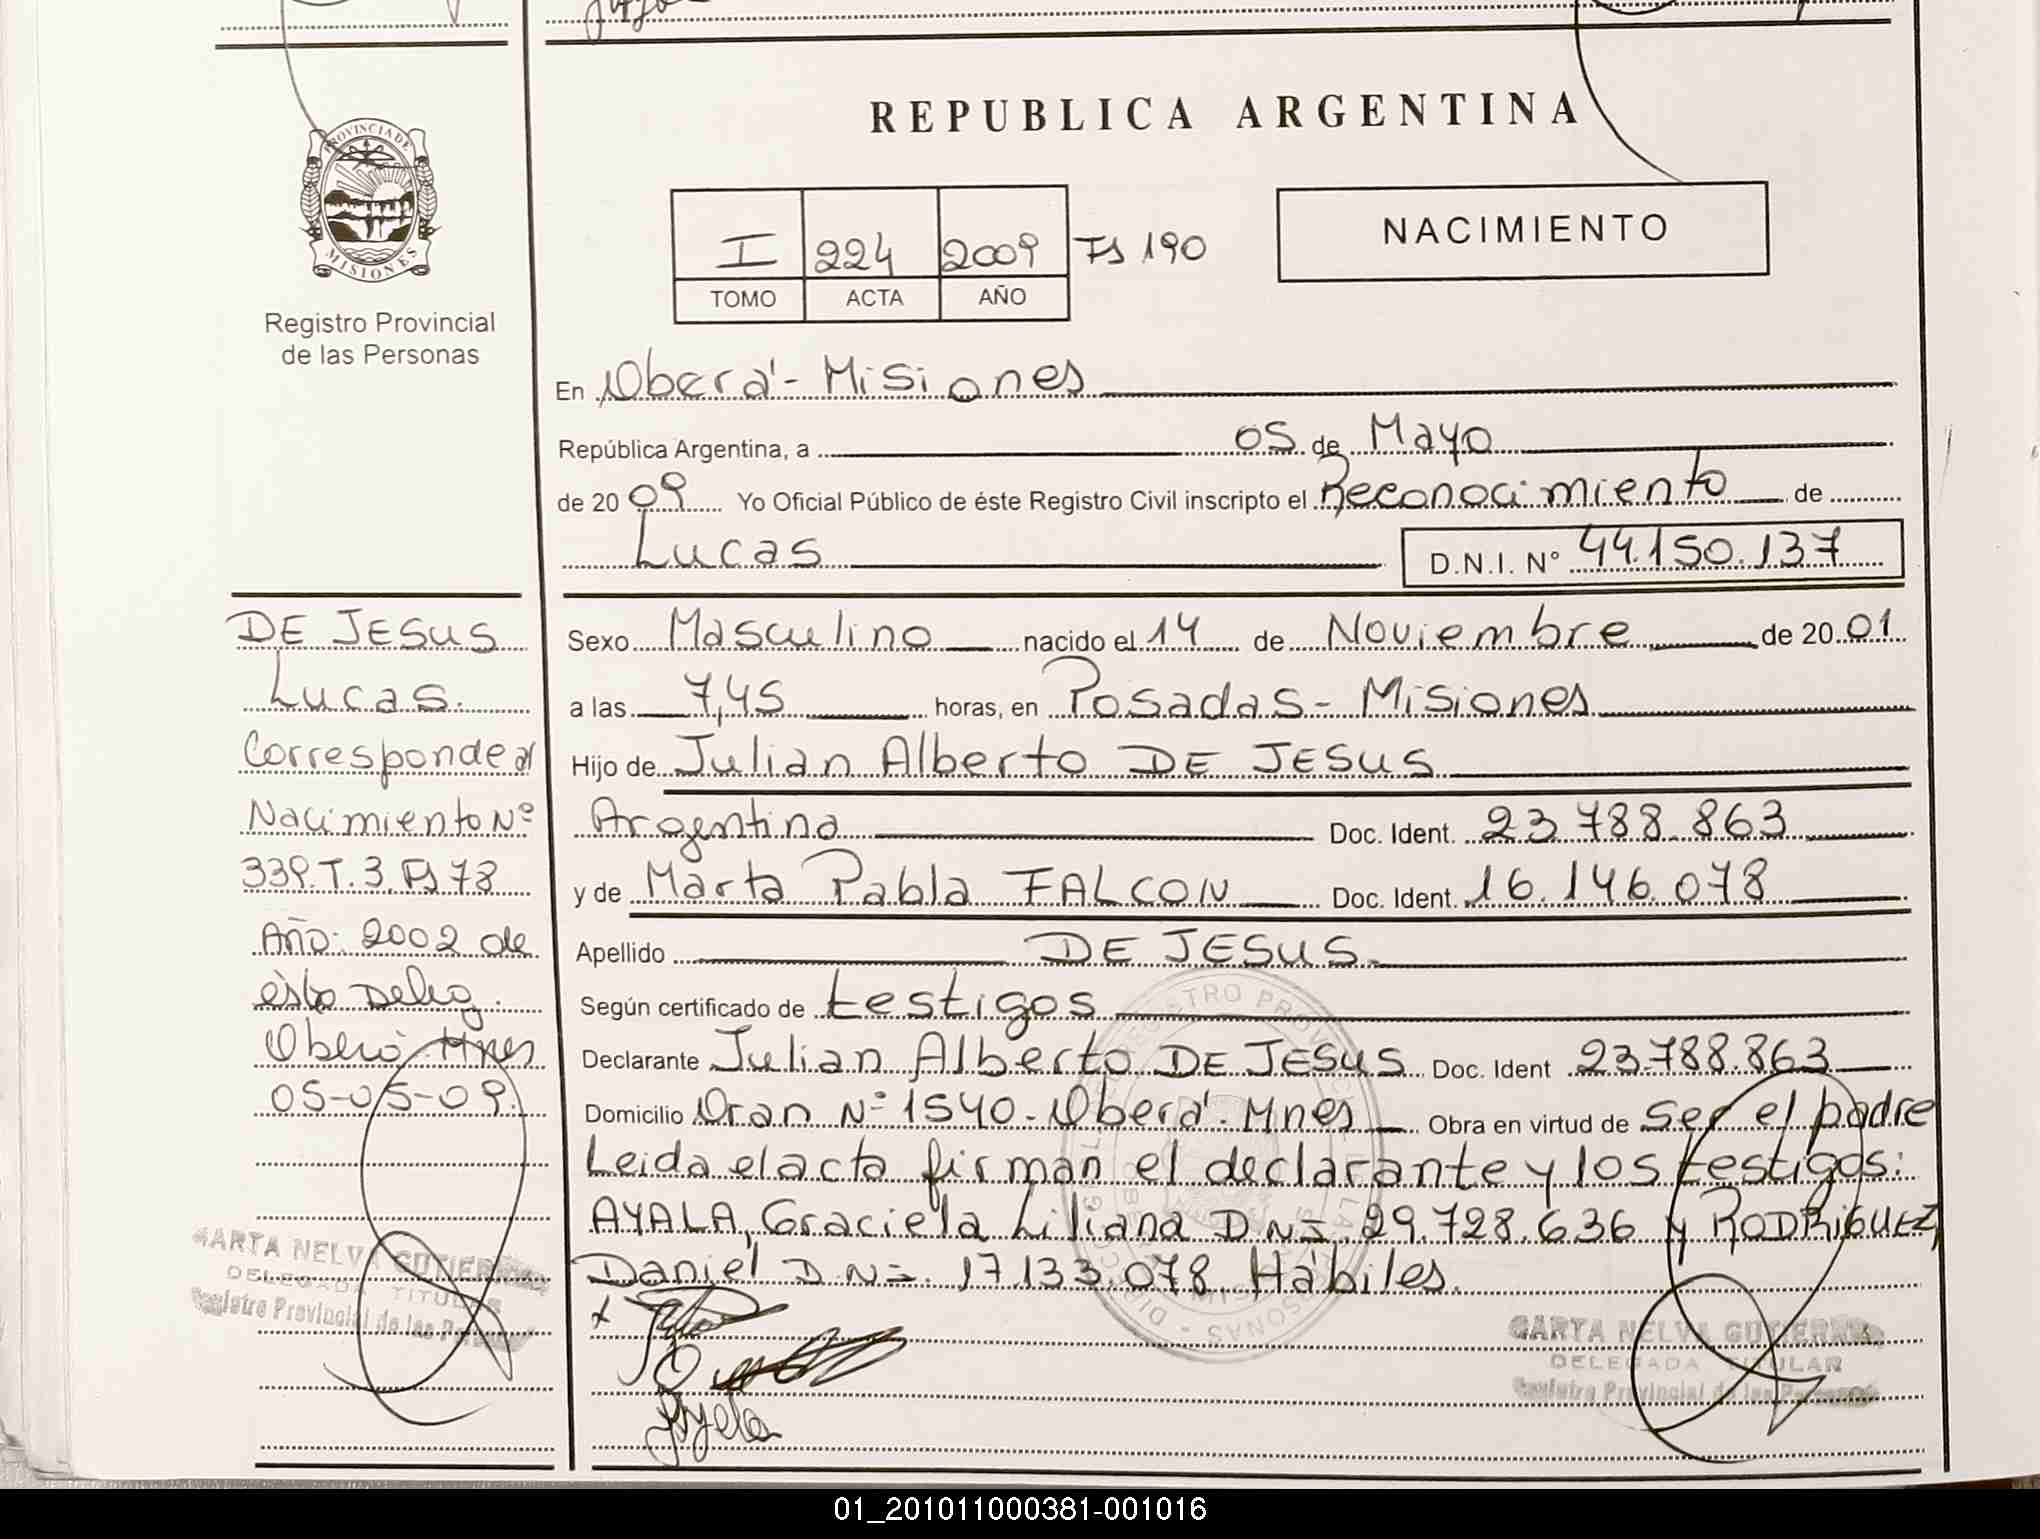 REPUBLICA ARGENTINA
PROVINCIA DE
MISIONES
Registro Provincial
de las Personas
I 224 2009 Fs 190
TOMO ACTA AÑO
NACIMIENTO
En Oberá - Misiones
República Argentina, a 05 de Mayo
de 20 09 Yo Oficial Público de éste Registro Civil inscripto el Reconocimiento de
Lucas D.N.I. Nº 44.150.137
DE JESUS
Lucas.
Corresponde al
Nacimiento Nº
339. T. 3. Fs 78
Año: 2002 de
ésta Deleg.
Oberá Mnes
05-05-09.
MARTA NELVA GUTIERREZ
DELEGADA TITULAR
Registro Provincial de las Personas
Sexo Masculino nacido el 14 de Noviembre de 20 01
a las 7,45 horas, en Posadas - Misiones
Hijo de Julian Alberto DE JESUS
Argentina Doc. Ident. 23.788.863
y de Marta Pabla FALCON Doc. Ident. 16.146.078
Apellido DE JESUS.
Según certificado de testigos
Declarante Julian Alberto DE JESUS Doc. Ident 23.788.863
Domicilio Oran Nº 1540 - Oberá - Mnes Obra en virtud de ser el padre
Leida el acta firman el declarante y los testigos:
AYALA, Graciela Liliana DNI. 29.728.636 y RODRIGUEZ,
Daniel DNI. 17.133.078 Hábiles.
MARTA NELVA GUTIERREZ
DELEGADA TITULAR
Registro Provincial de las Personas
01_201011000381-001016